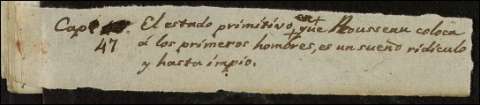 Cap.
47
El estado primitivo, en que Rousseau coloca
á los primeros hombres, es un sueño ridiculo
y hasta impio.